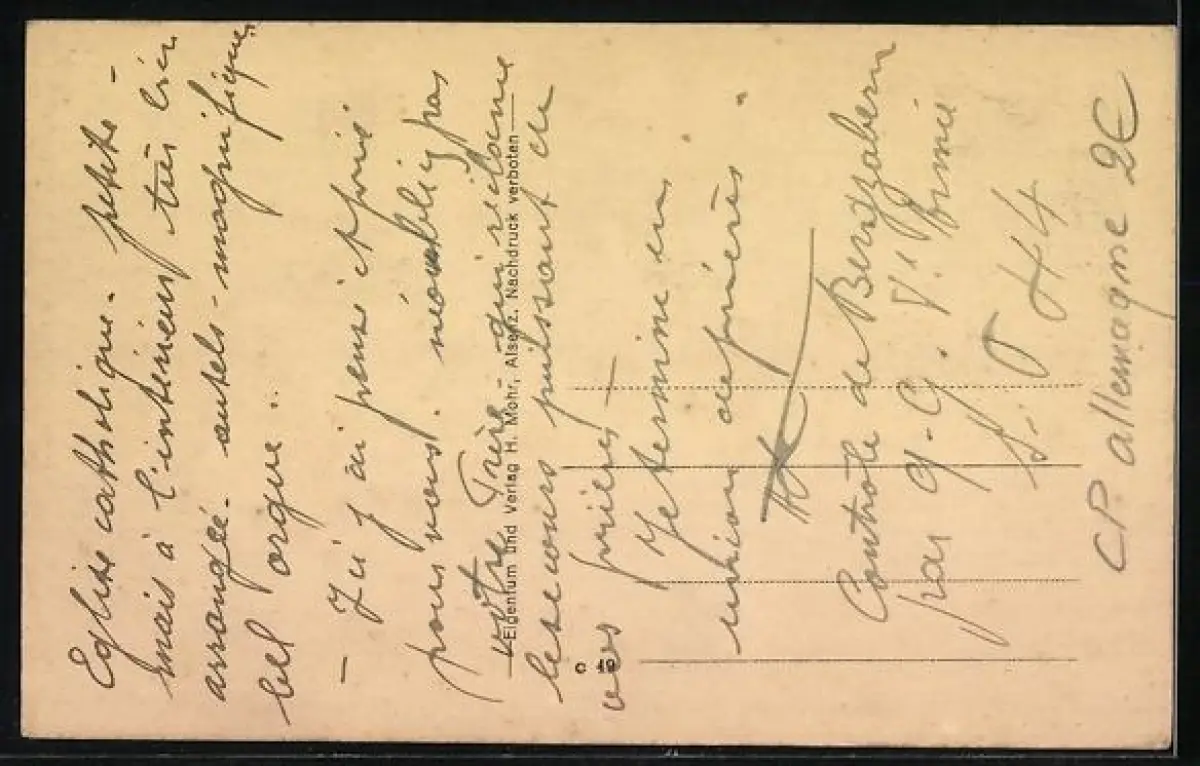 Eglise catholique. petite -
mais à l'intérieur très bien
arrangée. autels - magnifiques
bel orgue..
— Ici j'ai pensé et prié
pour vous. n'oubliez pas
votre frère qui réclame
le secours puissant de
vos prières —
Je termine en
union de prières.
Controle de Bergzabern
par Q.G. Vè Armée
S. P 44
CP allemagne 2€
Eigentum und Verlag H. Mohr, Alserz. Nachdruck verboten
C 49